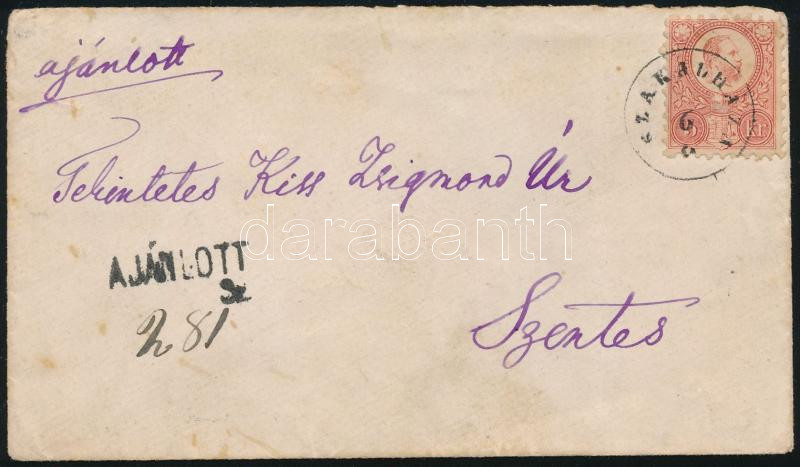 ajánlott
Tekintetes Kiss Zsigmond Úr
Szentes
AJÁNLOTT
Sz
281
SZAKALHAZA
6
Kr
darabanth